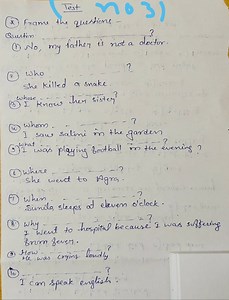 Test (no 3)
② Frame the questions -
Question ?
① No, my father is not a doctor.
② Who ?
She killed a snake
whose ?
③ I know her sister
④ whom ?
I saw Salini in the garden
⑤ what ?
I was playing football in the evening ?
⑥ where ?
She went to Agra.
⑦ when ?
Sunita sleeps at eleven o'clock.
⑧ why ?
I went to hospital because I was suffering
from fever.
⑨ How ?
He was crying loudly
⑩ ?
I can speak english.